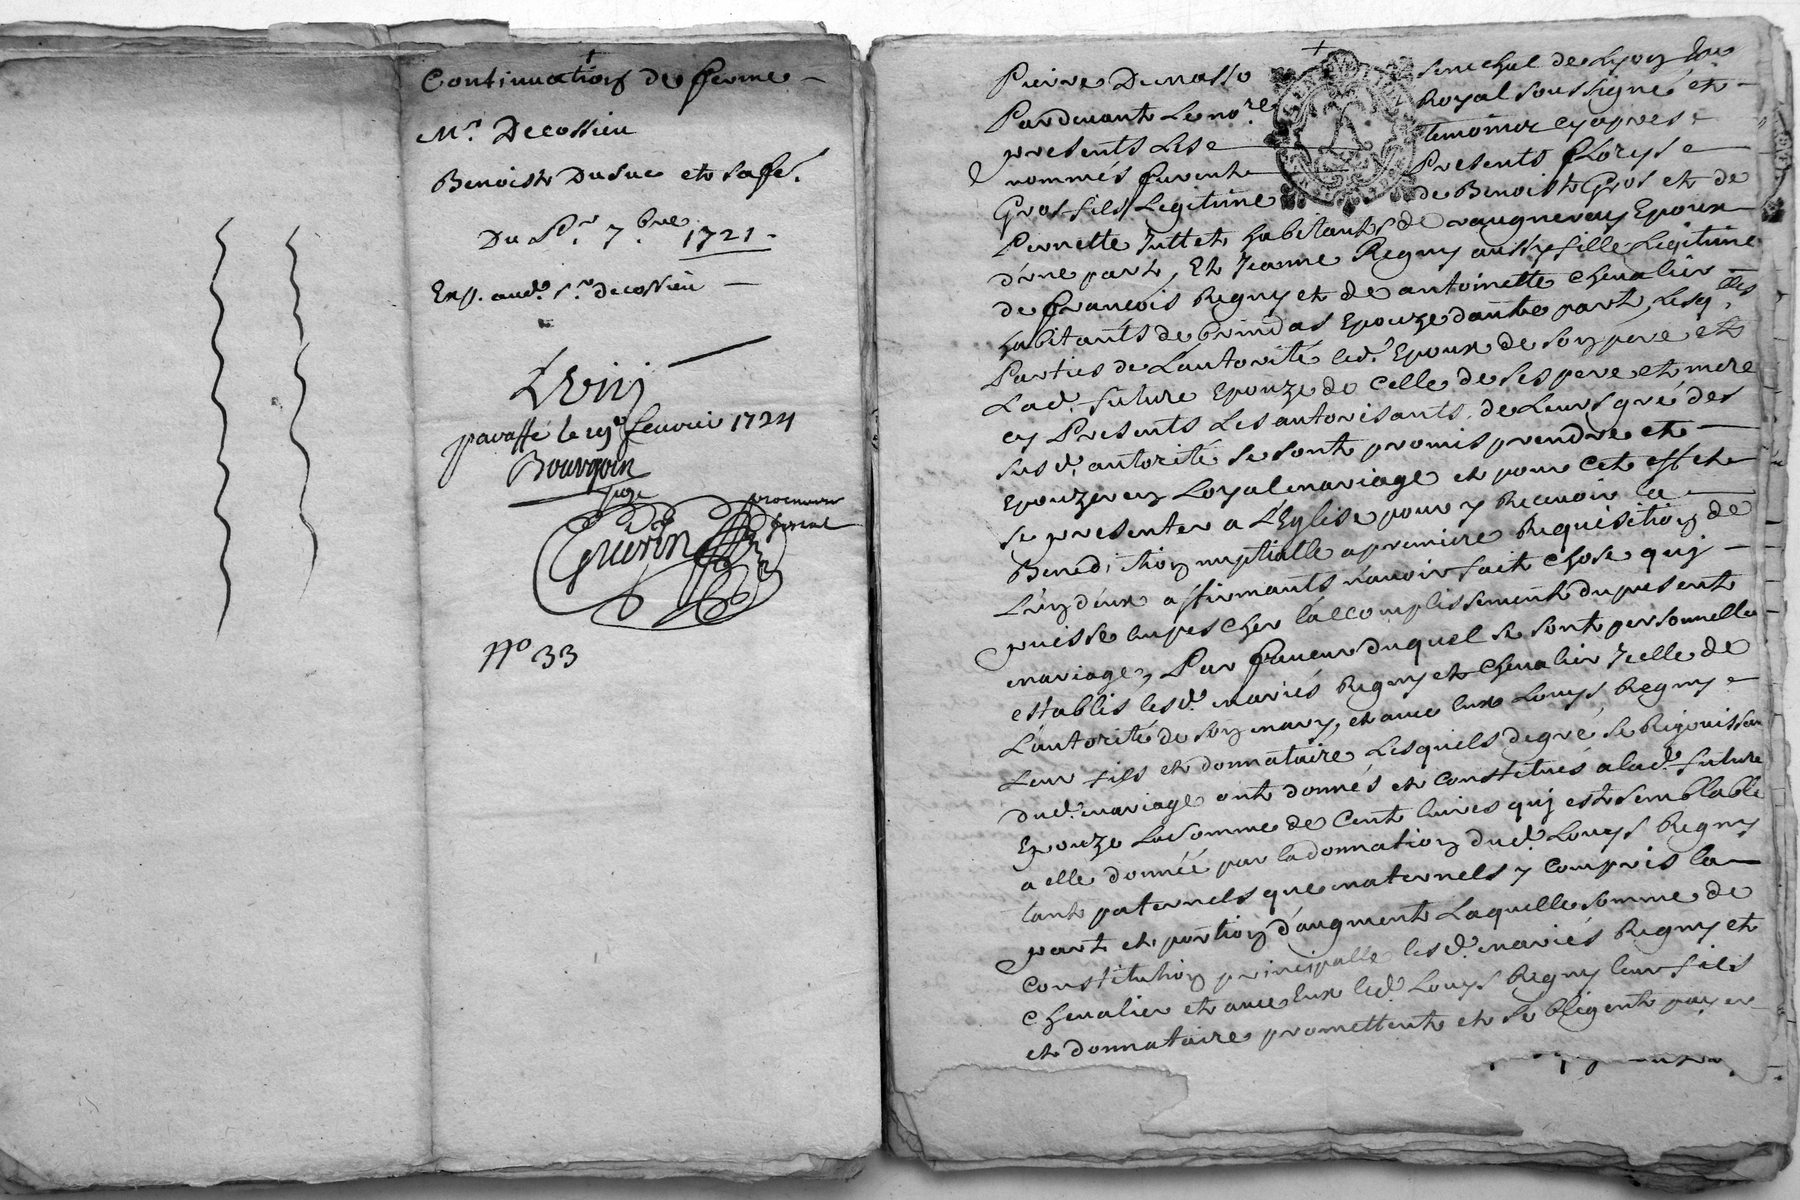 Continuation de ferme
Mr. Decossieu
Benoist Dusuc et sa fe.
Du Pr. 7.bre 1721.
Exp. aud. sr. decossieu
paraffé le feurier 1724
Bourgoin
procureur
Guerin
No 33
Pierre Demasso senechal de Lyon
Pardevant Le no.re Royal soussigné et
presents Les temoins cy apres
nommés furent Presents fleurys
Gros fils Legitime de Benoist Gros et de
Pernette habitants de vaugneray Epoux
d'vne part, Et Jeanne Regny aussy fille Legitime
de francois Regny et de antoinette chevalier
habitants de brindas Epouze dautre part, Lesq.lles
Parties de L'autorité led. Epoux de son pere et
Lad. future Epouze de celle de ses pere et mere
cy Presents Les autorisants, de Leurs gré des
susd. autorité se sont promis prendre et
Epouzer en Loyal mariage et pour cet effet
se presenter a L'Eglise pour y Recevoir la
Benediction nuptialle a premiere Requisition de
L'un d'eux affirmants n'avoir fait chose qui
puisse empescher l'accomplissement du present
mariage, Par faveur duquel se sont personnelle
establis lesd. mariés Regny et chevalier Icelle de
L'autorité de son mary, et avec eux Louys Regny
Leur fils et donnataire, Lesquels de gré se Rejouissan
dud. mariage ont donnés et constitués a lad. future
Epouze La somme de Cent livres qui est semblable
a elle donnée par la donnation dud. Louys Regny
tant paternels que maternels y compris la
part et portion d'augment Laquelle somme de
constitution principalle lesd. mariés Regny et
chevalier et avec Eux led. Louys Regny leur fils
et donnataire promettent et s'obligent payer